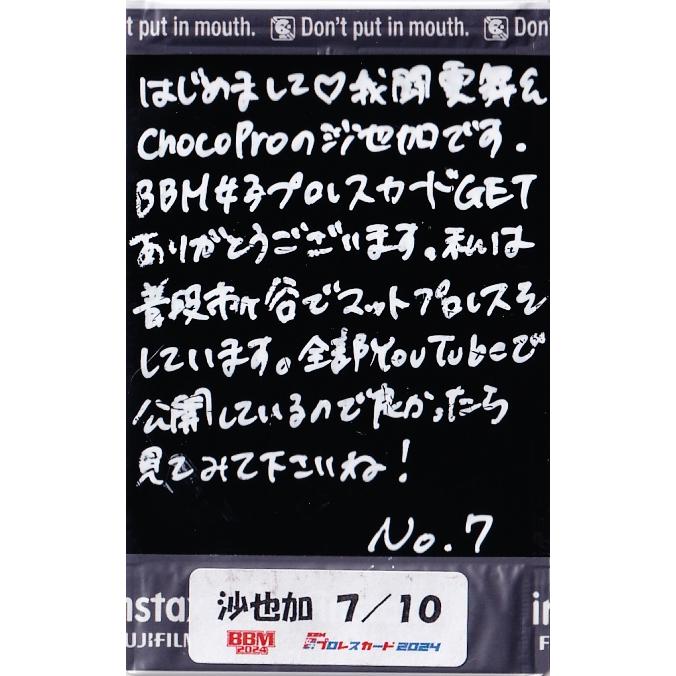 t put in mouth. Don't put in mouth. Don
はじめまして♡我闘雲舞&
ChocoProの沙也加です.
BBM女子プロレスカードGET
ありがとうございます。私は
普段市ヶ谷でマットプロレスを
しています。全部YouTubeで
公開しているので良かったら
見てみて下さいね!
No.7
nstax in
UJIFILM F
沙也加 7/10
BBM
2024
BBM
女子プロレスカード2024